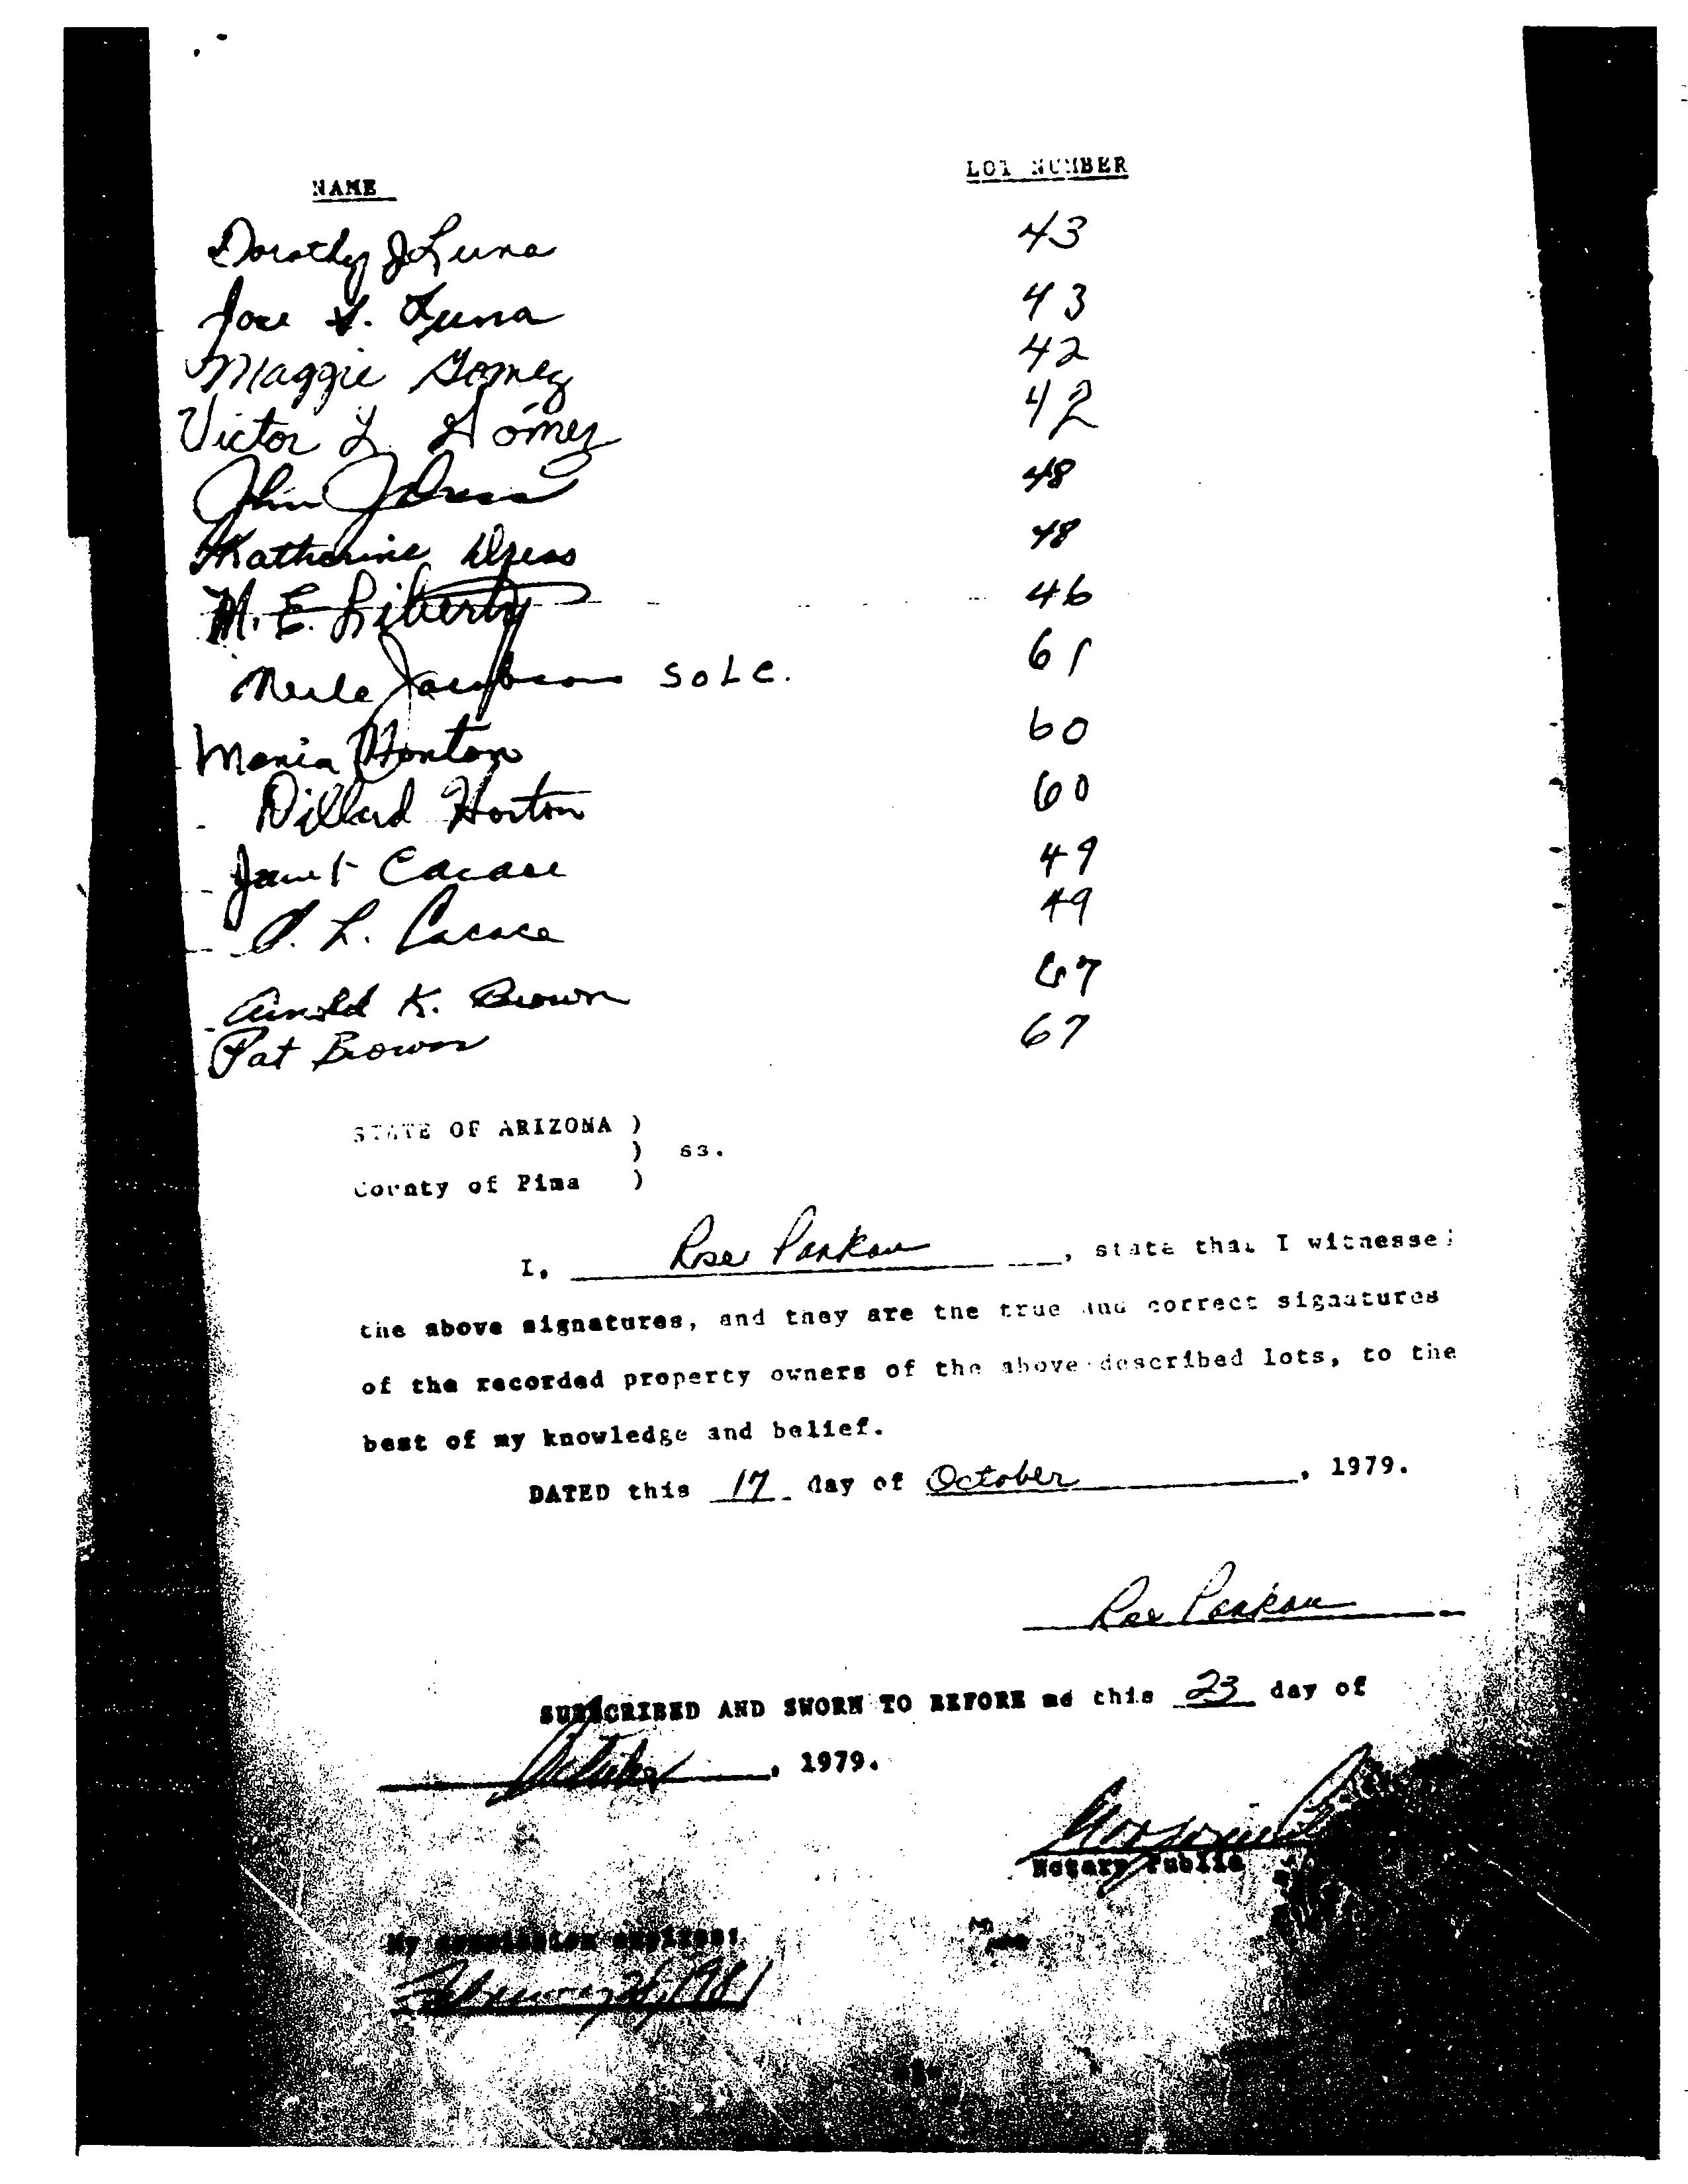 NAME LOT NUMBER
Dorothy J Luna 43
Jose S. Luna 43
Maggie Gomez 42
Victor L Gómez 42
John J Dress 48
Katherine Dress 48
M. E. Liberty 46
Merle Jacobson SOLE. 61
Maria Horton 60
Dillard Horton 60
Janet Cacace 49
L. Cacace 49
Arnold K. Brown 67
Pat Brown 67
STATE OF ARIZONA )
) ss.
County of Pima )
I, Rose Pankau, state that I witnessed
the above signatures, and they are the true and correct signatures
of the recorded property owners of the above described lots, to the
best of my knowledge and belief.
DATED this 17 day of October, 1979.
Rose Pankau
SUBSCRIBED AND SWORN TO BEFORE me this 23 day of
October, 1979.
Notary Public
My commission expires:
February 1981